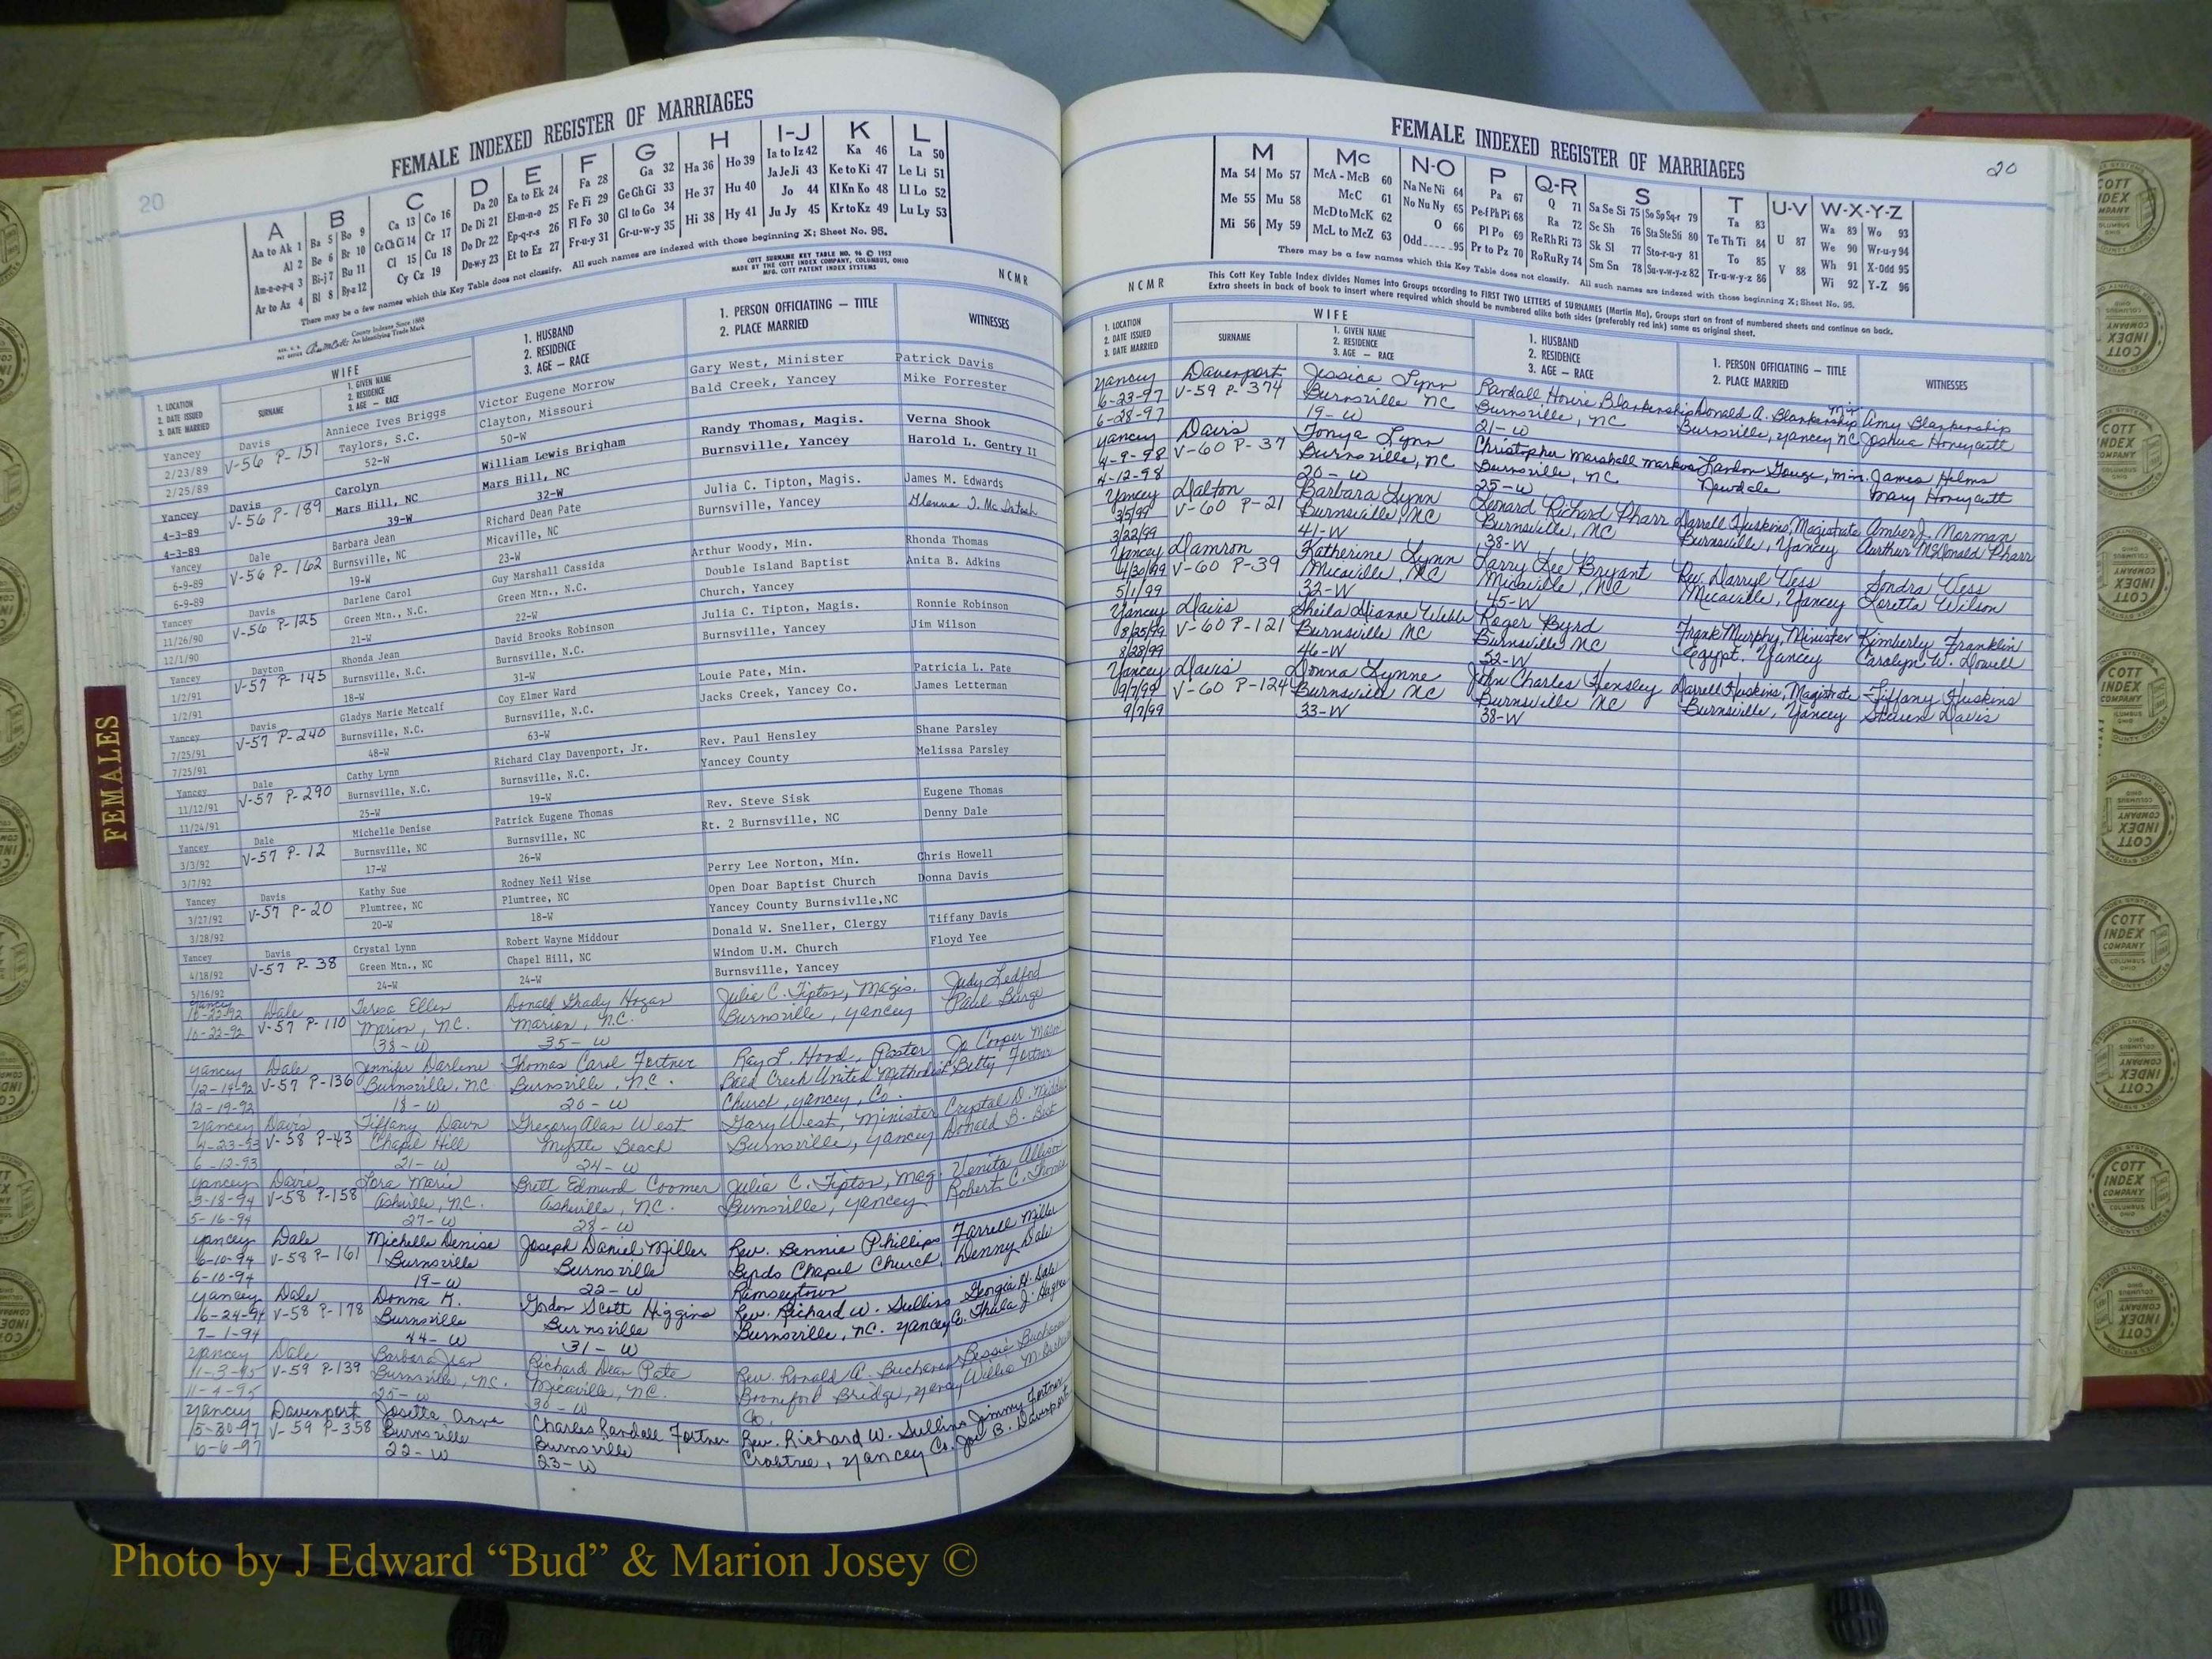 20
FEMALE INDEXED REGISTER OF MARRIAGES
A B C D E F G H I-J K L
Aa to Ak 1 Ba 5 Bo 9 Ca 13 Co 16 Da 20 Ea to Ek 24 Fa 28 Ga 32 Ha 36 Ho 39 Ia to Iz 42 Ka 46 La 50
Al 2 Be 6 Br 10 Ce Ch Ci 14 Cr 17 De Di 21 El-m-n-o 25 Fe Fi 29 Ge Gh Gi 33 He 37 Hu 40 Ja Je Ji 43 Ke to Ki 47 Le Li 51
Am-n-o-p-q 3 Bi-j 7 Bu 11 Cl 15 Cu 18 Do Dr 22 Ep-q-r-s 26 Fl Fo 30 Gl to Go 34 Hi 38 Hy 41 Jo 44 Kl Kn Ko 48 Ll Lo 52
Ar to Az 4 Bl 8 By-z 12 Cy Cz 19 Du-w-y 23 Et to Ez 27 Fr-u-y 31 Gr-u-w-y 35 Ju Jy 45 Kr to Kz 49 Lu Ly 53
There may be a few names which this Key Table does not classify. All such names are indexed with those beginning X; Sheet No. 95.
County Indexes Since 1888
An Identifying Trade Mark
COTT SURNAME KEY TABLE NO. 96 © 1952
MADE BY THE COTT INDEX COMPANY, COLUMBUS, OHIO
MFG. COTT PATENT INDEX SYSTEMS
NCMR
1. LOCATION
2. DATE ISSUED
3. DATE MARRIED
WIFE
SURNAME
1. GIVEN NAME
2. RESIDENCE
3. AGE — RACE
1. HUSBAND
2. RESIDENCE
3. AGE — RACE
1. PERSON OFFICIATING — TITLE
2. PLACE MARRIED
WITNESSES
Yancey Davis Anniece Ives Briggs Victor Eugene Morrow Gary West, Minister Patrick Davis
2/23/89 V-56 P-151 Taylors, S.C. Clayton, Missouri Bald Creek, Yancey Mike Forrester
2/25/89 52-W 50-W
Yancey Davis Carolyn William Lewis Brigham Randy Thomas, Magis. Verna Shook
4-3-89 V-56 P-189 Mars Hill, NC Mars Hill, NC Burnsville, Yancey Harold L. Gentry II
4-3-89 39-W 32-W
Yancey Dale Barbara Jean Richard Dean Pate Julia C. Tipton, Magis. James M. Edwards
6-9-89 V-56 P-162 Burnsville, NC Micaville, NC Burnsville, Yancey Glenna J. McIntosh
6-9-89 19-W 23-W
Yancey Davis Darlene Carol Guy Marshall Cassida Arthur Woody, Min. Rhonda Thomas
11/26/90 V-56 P-125 Green Mtn., N.C. Green Mtn., N.C. Double Island Baptist Anita B. Adkins
12/1/90 21-W 22-W Church, Yancey
Yancey Dayton Rhonda Jean David Brooks Robinson Julia C. Tipton, Magis. Ronnie Robinson
1/2/91 V-57 P-145 Burnsville, N.C. Burnsville, N.C. Burnsville, Yancey Jim Wilson
1/2/91 18-W 31-W
Yancey Davis Gladys Marie Metcalf Coy Elmer Ward Louie Pate, Min. Patricia L. Pate
7/25/91 V-57 P-240 Burnsville, N.C. Burnsville, N.C. Jacks Creek, Yancey Co. James Letterman
7/25/91 48-W 63-W
Yancey Dale Cathy Lynn Richard Clay Davenport, Jr. Rev. Paul Hensley Shane Parsley
11/12/91 V-57 P-290 Burnsville, N.C. Burnsville, N.C. Yancey County Melissa Parsley
11/24/91 25-W 19-W
Yancey Dale Michelle Denise Patrick Eugene Thomas Rev. Steve Sisk Eugene Thomas
3/3/92 V-57 P-12 Burnsville, NC Burnsville, NC Rt. 2 Burnsville, NC Denny Dale
3/7/92 17-W 26-W
Yancey Davis Kathy Sue Rodney Neil Wise Perry Lee Norton, Min. Chris Howell
3/27/92 V-57 P-20 Plumtree, NC Plumtree, NC Open Doar Baptist Church Donna Davis
3/28/92 20-W 18-W Yancey County Burnsivlle,NC
Yancey Davis Crystal Lynn Robert Wayne Middour Donald W. Sneller, Clergy Tiffany Davis
4/18/92 V-57 P-38 Green Mtn., NC Chapel Hill, NC Windom U.M. Church Floyd Yee
5/16/92 24-W 24-W Burnsville, Yancey
Yancey Dale Teresa Ellen Donald Grady Hogan Julia C. Tipton, Magis. Judy Ledford
10-22-92 V-57 P-110 Marion, N.C. Marion, N.C. Burnsville, Yancey Paul Barge
10-22-92 38-W 35-W
Yancey Dale Jennifer Darlene Thomas Carol Fortner Ray L. Hood, Pastor Jo Cooper
12-14-92 V-57 P-136 Burnsville, NC Burnsville, N.C. Bald Creek United Methodist Betty Fortner
12-19-92 18-W 20-W Church, Yancey, Co.
Yancey Davis Tiffany Dawn Gregory Alan West Gary West, Minister Crystal D.
4-23-93 V-58 P-43 Chapel Hill Myrtle Beach Burnsville, Yancey Donald B.
6-12-93 21-W 24-W
Yancey Davis Lora Marie Brett Edmund Coomer Julia C. Tipton, Mag. Venita Allison
3-18-94 V-58 P-158 Asheville, N.C. Asheville, N.C. Burnsville, Yancey Robert C. Thomas
5-16-94 27-W 28-W
Yancey Dale Michelle Denise Joseph Daniel Miller Rev. Bennie Phillips Farrell Miller
6-10-94 V-58 P-161 Burnsville Burnsville Byrds Chapel Church, Denny Dale
6-10-94 19-W 22-W Ramseytown
Yancey Dale Donna H. Gordon Scott Higgins Rev. Richard W. Sullins Georgia H. Dale
6-24-94 V-58 P-178 Burnsville Burnsville Burnsville, NC. Yancey Thula J.
7-1-94 44-W 31-W
Yancey Dale Barbara Jean Richard Dean Pate Rev. Ronald A. Buchanan Bessie Buchanan
11-3-95 V-59 P-139 Burnsville, NC. Micaville, N.C. Booneford Bridge, Yancey Willie M.
11-4-95 25-W 30-W Co.
Yancey Davenport Josetta Anna Charles Randall Fortner Rev. Richard W. Sullins Jimmy Fortner
5-30-97 V-59 P-358 Burnsville Burnsville Crabtree, Yancey Co. Joe B. Davenport
6-6-97 22-W 23-W
FEMALES
FEMALE INDEXED REGISTER OF MARRIAGES
20
M Mc N-O P Q-R S T U-V W-X-Y-Z
Ma 54 Mo 57 McA - McB 60 Na Ne Ni 64 Pa 67 Q 71 Sa Se Si 75 So Sp Sq-r 79 Ta 83 Wa 89 Wo 93
Me 55 Mu 58 McC 61 No Nu Ny 65 Pe-f Ph Pi 68 Ra 72 Sc Sh 76 Sta Ste Sti 80 Te Th Ti 84 U 87 We 90 Wr-u-y 94
Mi 56 My 59 McD to McK 62 O 66 Pl Po 69 Re Rh Ri 73 Sk Sl 77 Sto-r-u-y 81 To 85 Wh 91 X-Odd 95
McL to McZ 63 Odd 95 Pr to Pz 70 Ro Ru Ry 74 Sm Sn 78 Su-v-w-y-z 82 Tr-u-w-y-z 86 V 88 Wi 92 Y-Z 96
There may be a few names which this Key Table does not classify. All such names are indexed with those beginning X; Sheet No. 95.
This Cott Key Table Index divides Names into Groups according to FIRST TWO LETTERS of SURNAMES (Martin Ma). Groups start on front of numbered sheets and continue on back.
Extra sheets in back of book to insert where required which should be numbered alike both sides (preferably red ink) same as original sheet.
NCMR
1. LOCATION
2. DATE ISSUED
3. DATE MARRIED
WIFE
SURNAME
1. GIVEN NAME
2. RESIDENCE
3. AGE — RACE
1. HUSBAND
2. RESIDENCE
3. AGE — RACE
1. PERSON OFFICIATING — TITLE
2. PLACE MARRIED
WITNESSES
Yancey Davenport Jessica Lynn Randall Blankenship Donald A. Blankenship Min. Amy Blankenship
6-23-97 V-59 P-374 Burnsville NC Burnsville, NC Burnsville, Yancey NC Joshua Honeycutt
6-28-97 19-W 21-W
Yancey Davis Tonya Lynn Christopher Marshall Landon Gouge, Min. James Helms
4-9-98 V-60 P-37 Burnsville, NC Burnsville, NC Newdale Mary Honeycutt
4-12-98 20-W 25-W
Yancey Dalton Barbara Lynn Leonard Richard Pharr Darrell Huskins, Magistrate Amber J. Morman
3/5/99 V-60 P-21 Burnsville, NC Burnsville, NC Burnsville, Yancey Aurthur McDonald Pharr
3/22/99 41-W 38-W
Yancey Damron Katherine Lynn Larry Lee Bryant Rev. Darryl Wess Sondra Wess
4/30/99 V-60 P-39 Micaville, NC Micaville, NC Micaville, Yancey Loretta Wilson
5/1/99 32-W 45-W
Yancey Davis Sheila Dianne Webb Roger Byrd Frank Murphy, Minister Kimberly Franklin
8/25/99 V-60 P-121 Burnsville NC Burnsville NC Egypt. Yancey Carolyn W. Howell
8/28/99 46-W 52-W
Yancey Davis Donna Lynne John Charles Hensley Darrell Huskins, Magistrate Tiffany Huskins
9/7/99 V-60 P-124 Burnsville NC Burnsville NC Burnsville, Yancey Steven Davis
9/7/99 33-W 38-W
COTT INDEX COMPANY COLUMBUS OHIO
Photo by J Edward “Bud” & Marion Josey ©